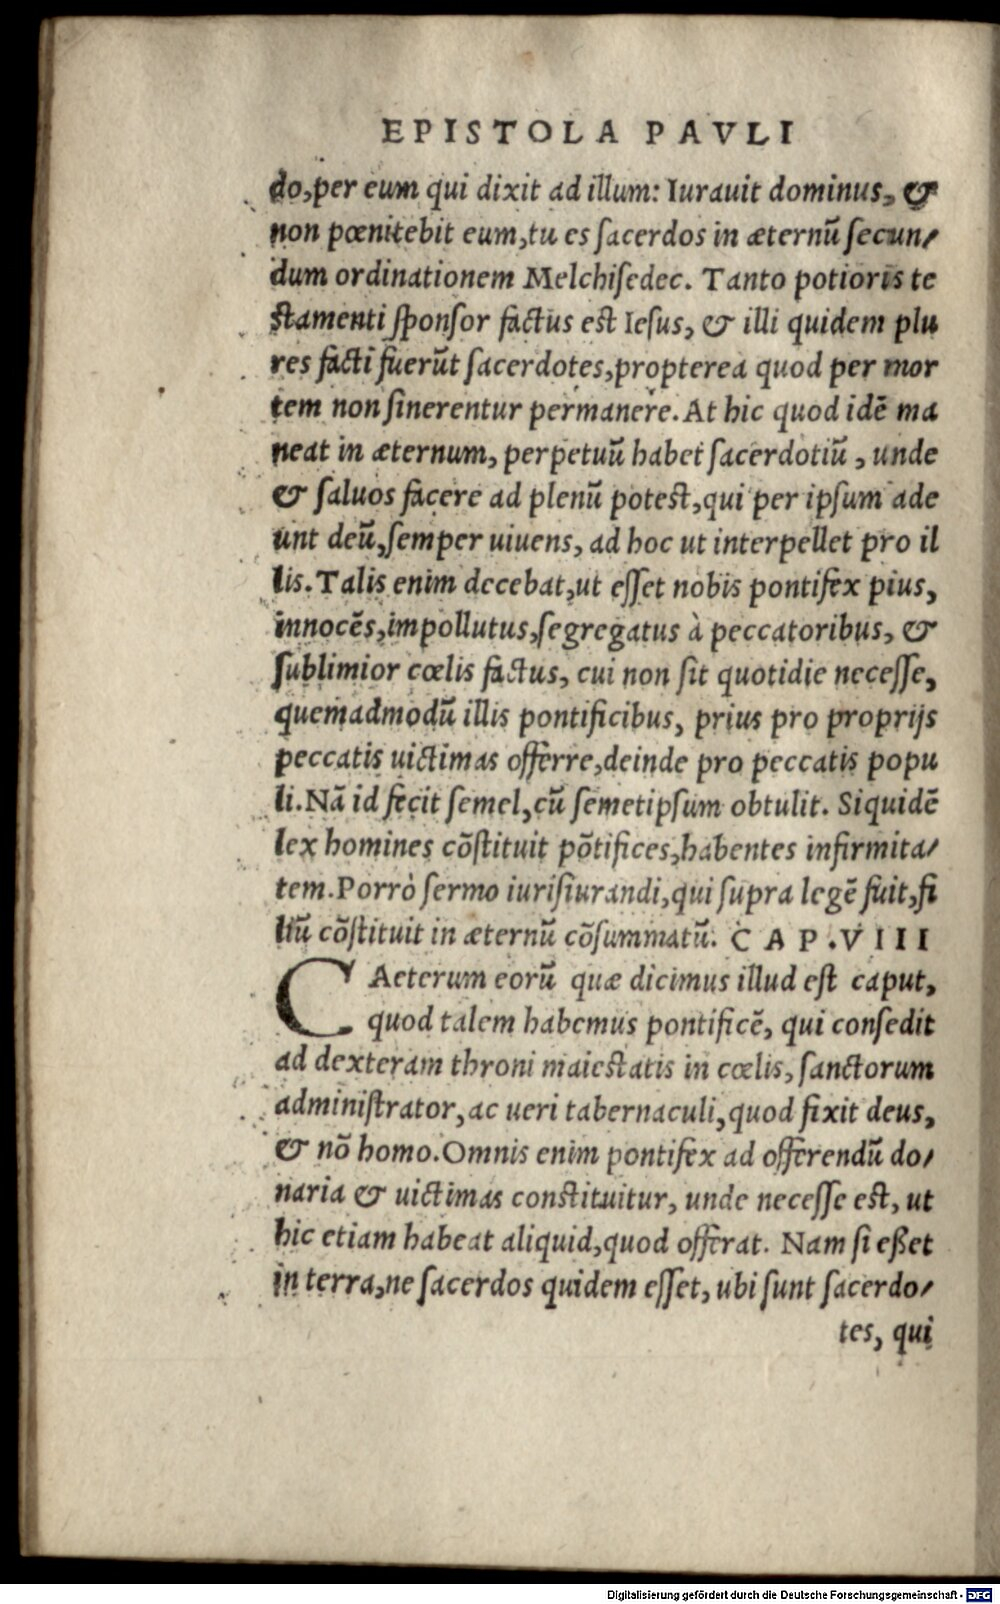 EPISTOLA PAVLI
do,per eum qui dixit ad illum: Iurauit dominus, &
non pœnitebit eum,tu es ſacerdos in æternũ ſecun/
dum ordinationem Melchiſedec. Tanto potioris te
ſtamenti ſponſor factus eſt Ieſus, & illi quidem plu
res facti fuerũt ſacerdotes,propterea quod per mor
tem non ſinerentur permanere. At hic quod idẽ ma
neat in æternum, perpetuũ habet ſacerdotiũ , unde
& ſaluos facere ad plenũ poteſt,qui per ipſum ade
unt deũ,ſemper uiuens, ad hoc ut interpellet pro il
lis. Talis enim decebat,ut eſſet nobis pontifex pius,
innocẽs,impollutus,ſegregatus à peccatoribus, &
ſublimior cœlis factus, cui non ſit quotidie neceſſe,
quemadmodũ illis pontificibus, prius pro proprijs
peccatis uictimas offerre,deinde pro peccatis popu
li. Nã id fecit ſemel,cũ ſemetipſum obtulit. Siquidẽ
lex homines cõſtituit põtifices,habentes infirmita/
tem. Porrò ſermo iuriſiurandi,qui ſupra legẽ fuit,fi
liũ cõſtituit in æternũ cõſummatũ. CAP.VIII
CAeterum eorũ quæ dicimus illud eſt caput,
quod talem habemus pontificẽ, qui conſedit
ad dexteram throni maieſtatis in cœlis, ſanctorum
adminiſtrator,ac ueri tabernaculi,quod fixit deus,
& nõ homo. Omnis enim pontifex ad offerendũ do/
naria & uictimas conſtituitur, unde neceſſe eſt, ut
hic etiam habeat aliquid,quod offerat. Nam ſi eßet
in terra,ne ſacerdos quidem eſſet, ubi ſunt ſacerdo/
tes, qui
Digitalisierung gefördert durch die Deutsche Forschungsgemeinschaft - DFG